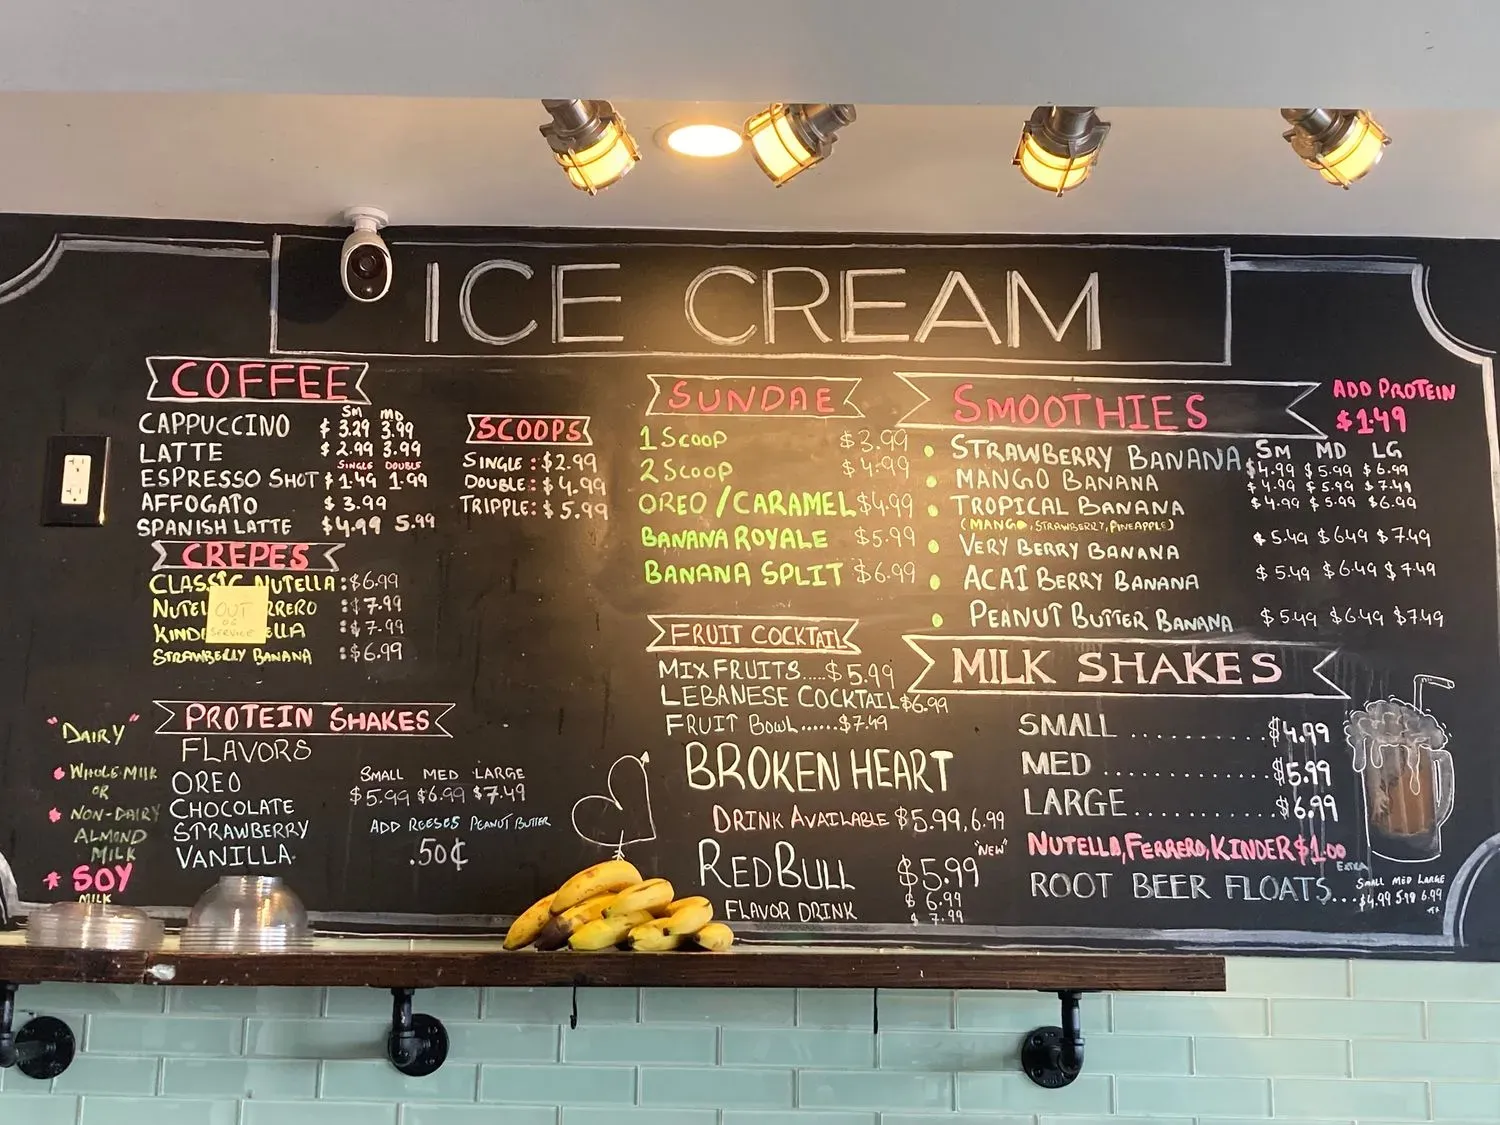 ICE CREAM
COFFEE
SM MD
CAPPUCCINO $3.29 3.99
LATTE $2.99 3.99
SINGLE DOUBLE
ESPRESSO SHOT $1.49 1.99
AFFOGATO $3.99
SPANISH LATTE $4.99 5.99
CREPES
CLASSIC NUTELLA: $6.99
$7.99
$7.99
STRAWBERLLY BANANA : $6.99
OUT
OF
SERVICE
SCOOPS
SINGLE: $2.99
DOUBLE: $4.99
TRIPPLE: $5.99
"DAIRY"
WHOLE MILK
OR
NON-DAIRY
ALMOND
MILK
* SOY
MILK
PROTEIN SHAKES
FLAVORS
OREO
CHOCOLATE
STRAWBERRY
VANILLA
SMALL MED LARGE
$5.99 $6.99 $7.49
ADD REESES PEANUT BUTTER
.50¢
SUNDAE
1 SCOOP $3.99
2 SCOOP $4.99
OREO / CARAMEL $4.99
BANANA ROYALE $5.99
BANANA SPLIT $6.99
FRUIT COCKTAIL
MIX FRUITS.....$5.99
LEBANESE COCKTAIL $6.99
FRUIT BOWL......$7.49
BROKEN HEART
DRINK AVAILABLE $5.99, 6.99
"NEW"
REDBULL $5.99
$6.99
FLAVOR DRINK $7.99
SMOOTHIES
ADD PROTEIN
$1.49
SM MD LG
• STRAWBERRY BANANA $4.99 $5.99 $6.99
• MANGO BANANA $4.99 $5.99 $7.49
• TROPICAL BANANA $4.99 $5.99 $6.99
(MANGO, STRAWBERRY, PINEAPPLE)
• VERY BERRY BANANA $5.49 $6.49 $7.49
• ACAI BERRY BANANA $5.49 $6.49 $7.49
• PEANUT BUTTER BANANA $5.49 $6.49 $7.49
MILK SHAKES
SMALL ........... $4.99
MED ............. $5.99
LARGE........... $6.99
NUTELLA, FERRERO, KINDER $1.00
EXTRA
SMALL MED LARGE
ROOT BEER FLOATS... $4.99 5.98 6.99